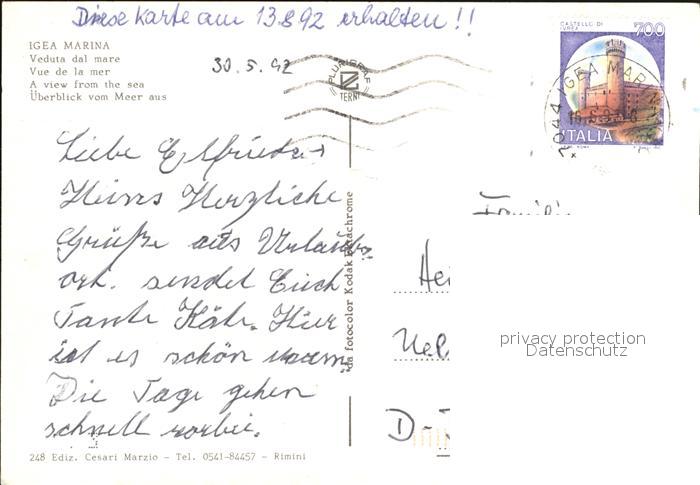 Diese Karte am 13.8.92 erhalten!!
IGEA MARINA
Veduta dal mare
Vue de la mer
A view from the sea
Überblick vom Meer aus
30.5.92
PLURIGRAF
TERNI
CASTELLO DI
IVREA
700
ITALIA
IGEA MARINA
Liebe Elfriede +
Heinz Herzliche
Grüße aus Urlaubs-
ort. sendet Euch
Tante Käte. Hier
ist es schön warm.
Die Tage gehen
schnell vorbei.
da fotocolor Kodak Ektachrome
Famili
Hei
Uel
D-
privacy protection
Datenschutz
248 Ediz. Cesari Marzio - Tel. 0541-84457 - Rimini